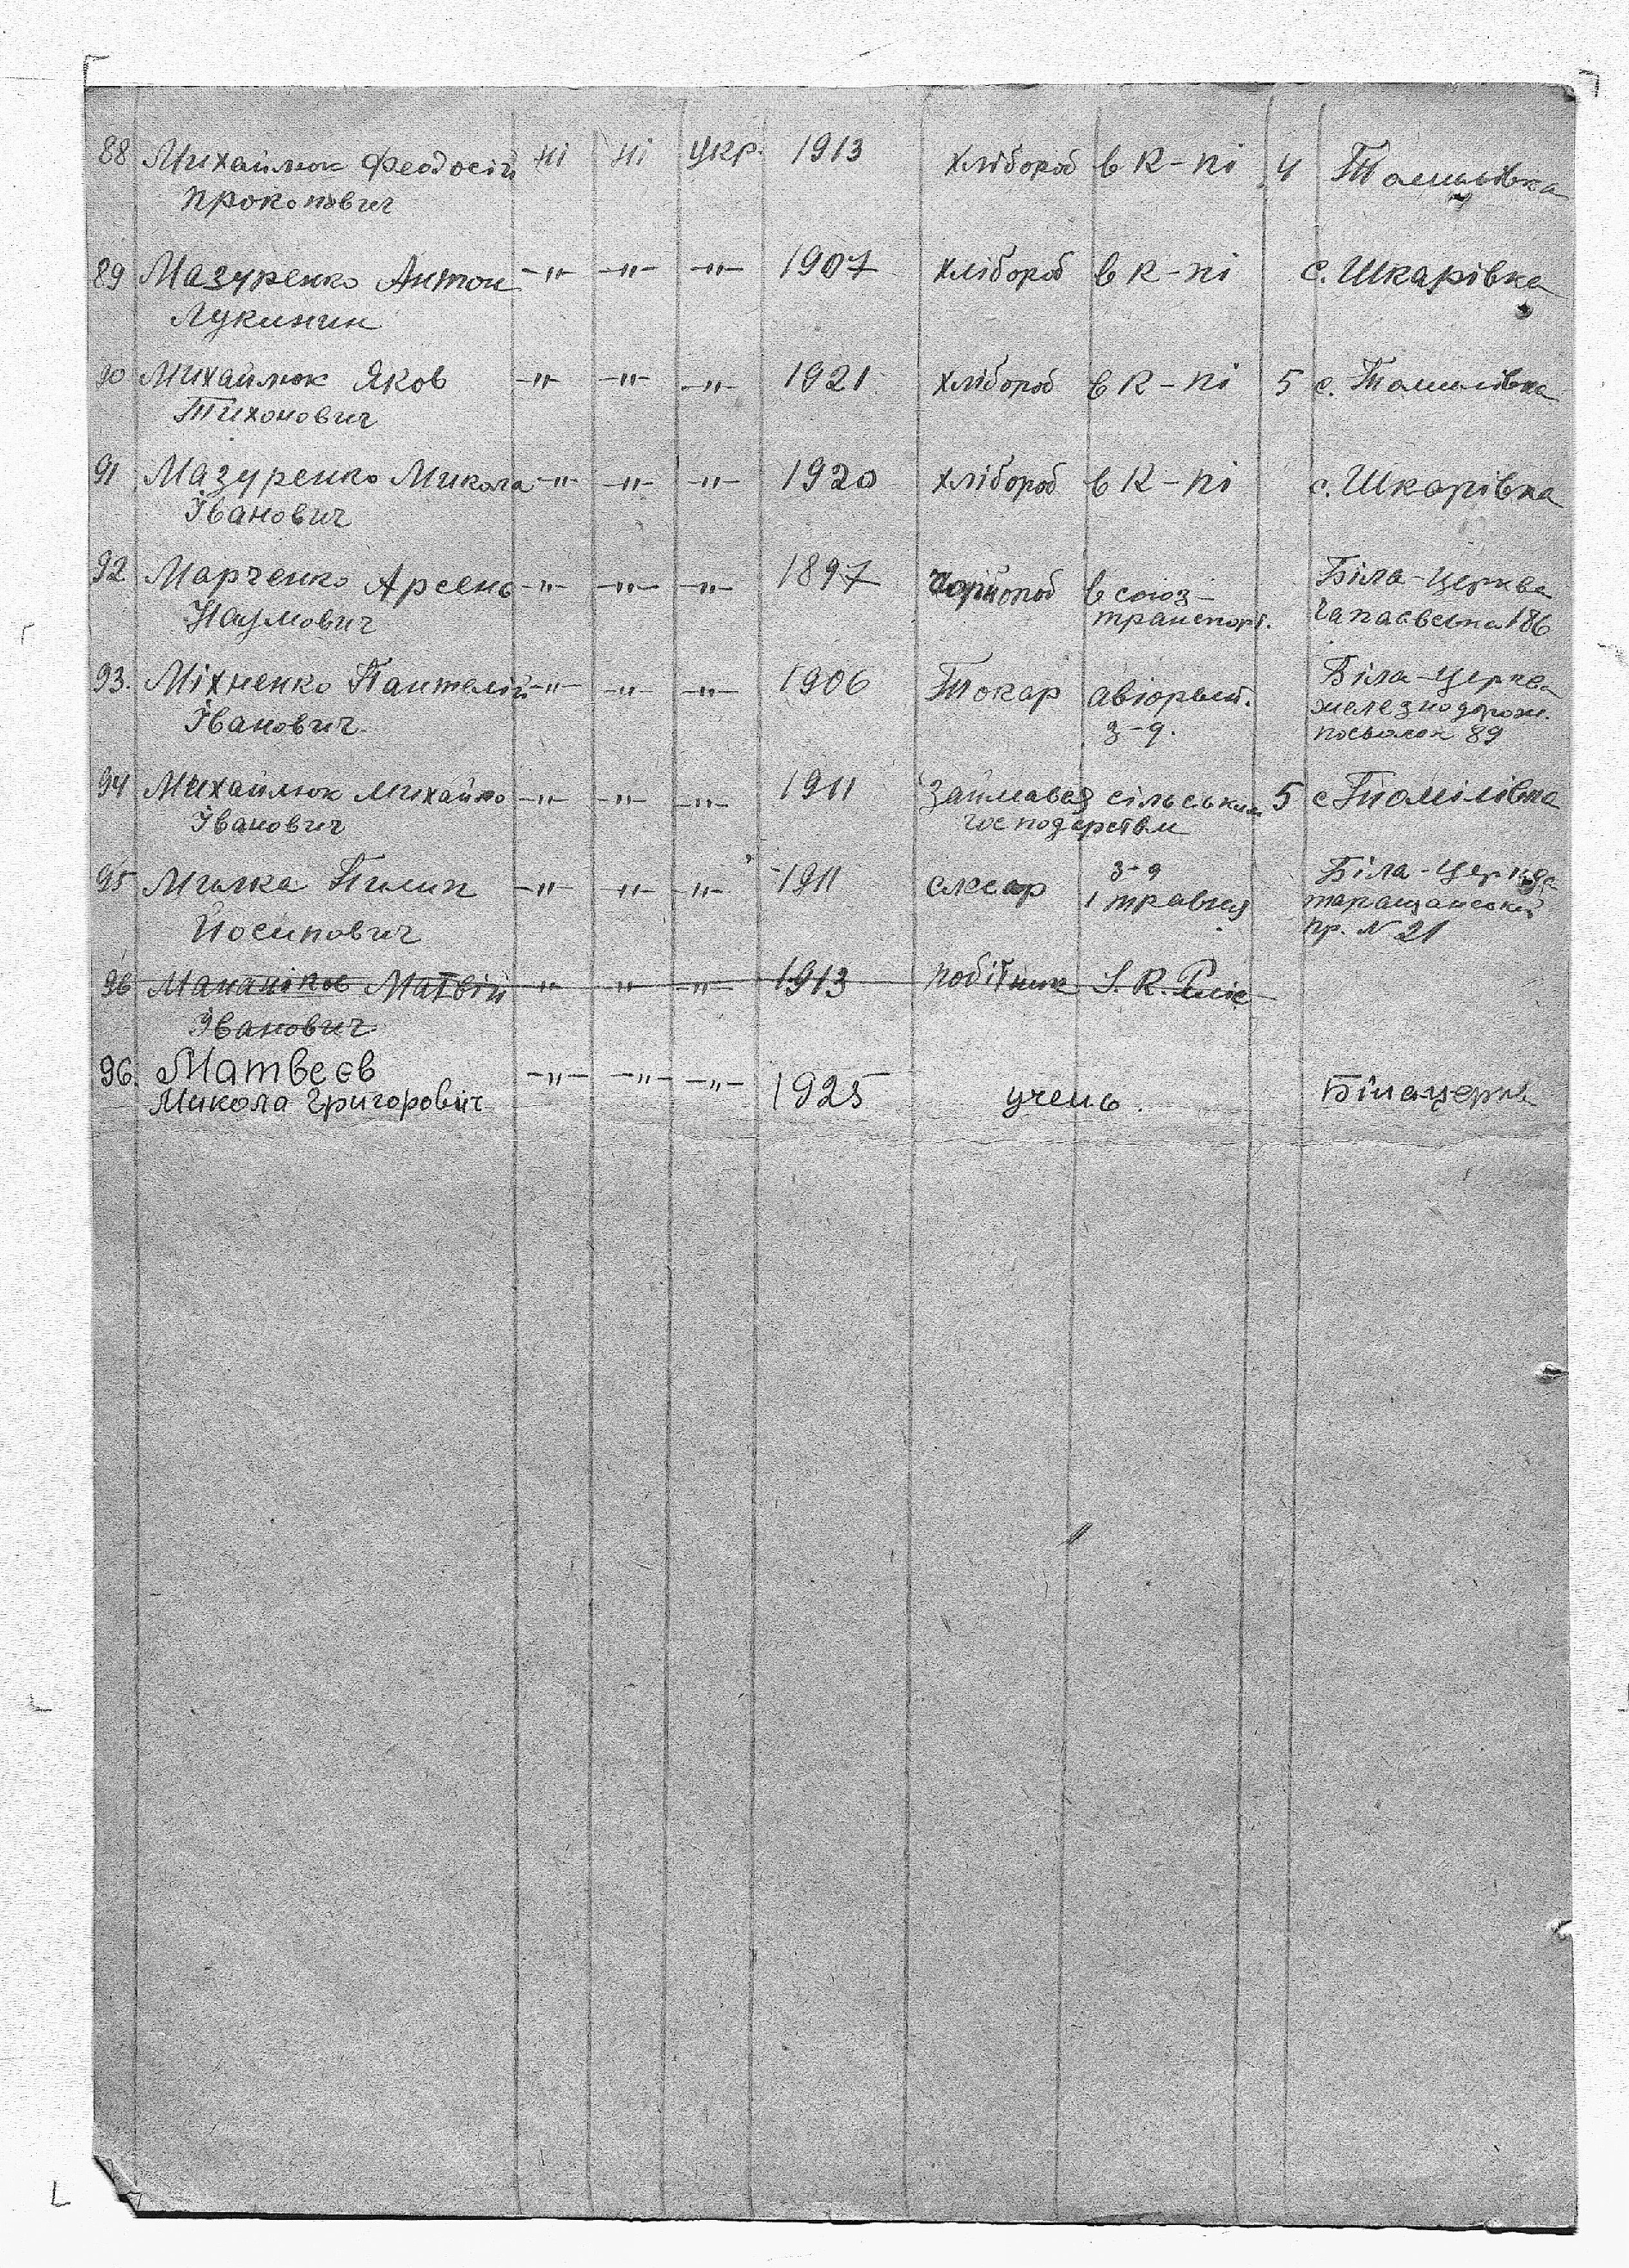 88 Михайлюк Феодосій ні ні укр. 1913 хлібороб в к-пі 4 Томилівка
Прокопович
89 Мазуренко Антон -"- -"- -"- 1907 хлібороб в к-пі с. Шкарівка
Лукинин
90 Михайлюк Яков -"- -"- -"- 1921 хлібороб в к-пі 5 с. Томилівка
Тихонович
91 Мазуренко Микола -"- -"- -"- 1920 хлібороб в к-пі с. Шкарівка
Іванович
92 Марченко Арсень -"- -"- -"- 1897 в союз- Біла-Церква
Наумович транспорт. 186
93. Міхненко Пантелій -"- -"- -"- 1906 Токар Біла-Церква
Іванович з-д. железнодорож.
посьолок 89
94 Михайлюк Михайло -"- -"- -"- 1911 займавсь сільським 5 с Томілівка
Іванович господарствм
95 Пилип -"- -"- -"- 1911 слюсар з-д Біла-Церква
Йосипович 1 травня таращанський
пр. N 21
96 Матвій -"- -"- -"- 1913 робітник
Іванович
96. Матвеєв -"- -"- -"- 1925 учень. Білацерква
Микола Григоровіч